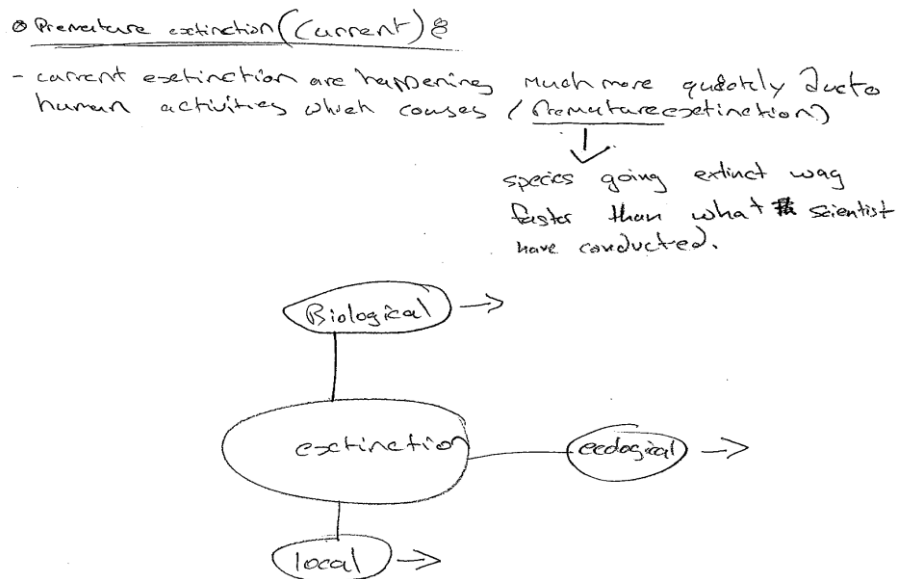 Premature extinction (Current) :
- current exetinction are happening much more quikely due to
human activities which causes (Premature exetinction)
species going extinct way
faster than what scientist
have conducted.
Biological →
exctinction
ecological →
local →